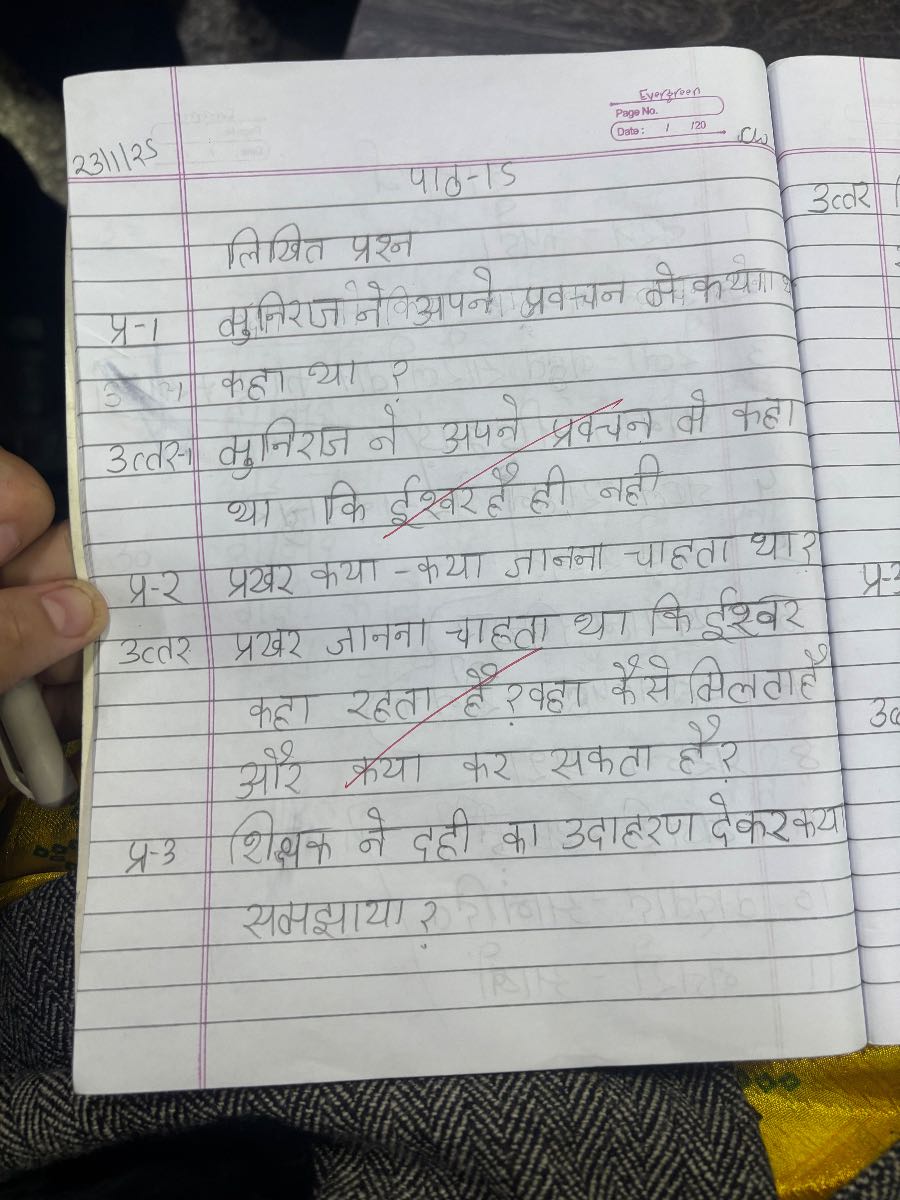 Evergreen
Page No.
Date: / /20
23/11/25
cw
पाठ-15
लिखित प्रश्न
प्र-1 मुनिराज ने अपने प्रवचन मे कया
कहा था ?
उत्तर-1 मुनिराज ने अपने प्रवचन मे कहा
था कि ईश्वर है ही नही
प्र-2 प्रखर कया-कया जानना चाहता था?
उत्तर प्रखर जानना चाहता था कि ईश्वर
कहा रहता है ? वहा कैसे मिलता है
और कया कर सकता है ?
प्र-3 शिक्षक ने दही का उदाहरण देकर कया
समझाया ?
उत्तर